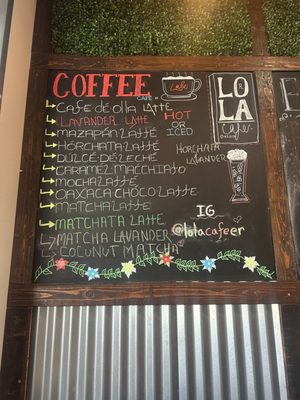 COFFEE
CAFE
Lola
LOLA
Cafe
Cafe de olla Latte
LAVANDER LATTE
HOT
OR
ICED
MAZAPÁN LATTE
HORCHATA LATTE
HORCHATA
LAVANDER
DULCE DE LECHE
CARAMEL MACCHIATO
MOCHA LATTE
OAXACA CHOCO LATTE
MATCHA LATTE
MATCHATA LATTE
MATCHA LAVANDER
COCONUT MATCHA
IG
@lolacafeer